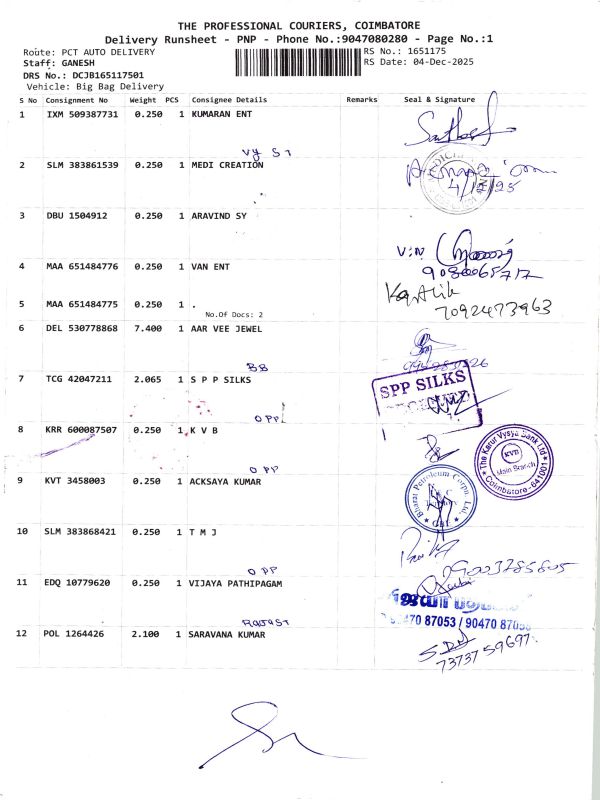 THE PROFESSIONAL COURIERS, COIMBATORE
Delivery Runsheet - PNP - Phone No.:9047080280 - Page No.:1
Route: PCT AUTO DELIVERY
RS No.: 1651175
Staff: GANESH
RS Date: 04-Dec-2025
DRS No.: DCJB165117501
Vehicle: Big Bag Delivery
S No Consignment No Weight PCS Consignee Details Remarks Seal & Signature
1 IXM 509387731 0.250 1 KUMARAN ENT
Vy ST
2 SLM 383861539 0.250 1 MEDI CREATION
3 DBU 1504912 0.250 1 ARAVIND SY
4 MAA 651484776 0.250 1 VAN ENT
5 MAA 651484775 0.250 1 .
Karthik
No.Of Docs: 2
7092473963
6 DEL 530778868 7.400 1 AAR VEE JEWEL
BB
7 TCG 42047211 2.065 1 S P P SILKS
SPP SILKS
OPP
8 KRR 600087507 0.250 1 K V B
The Karur Vysya Bank Ltd
KVB
Main Branch
Coimbatore - 641001
OPP
9 KVT 3458003 0.250 1 ACKSAYA KUMAR
Bharat Petroleum Corpn. Ltd.
10 SLM 383868421 0.250 1 T M J
OPP
09003285805
11 EDQ 10779620 0.250 1 VIJAYA PATHIPAGAM
87053 / 90470 87053
RajaST
12 POL 1264426 2.100 1 SARAVANA KUMAR
73737 59697